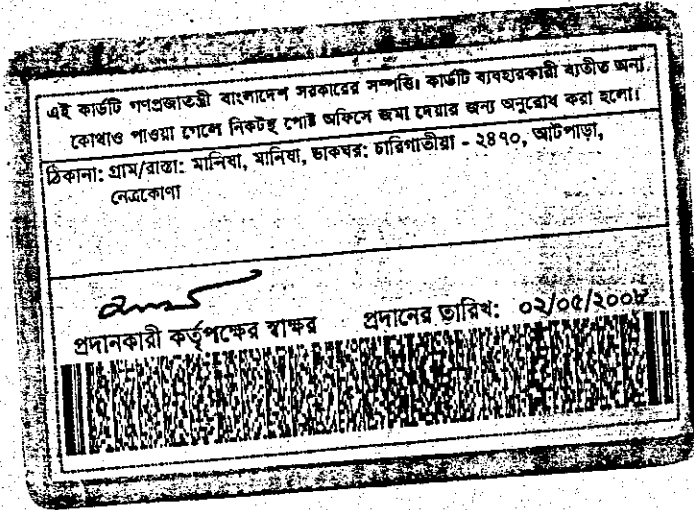 এই কার্ডটি গণপ্রজাতন্ত্রী বাংলাদেশ সরকারের সম্পত্তি। কার্ডটি ব্যবহারকারী ব্যতীত অন্য
কোথাও পাওয়া গেলে নিকটস্থ পোষ্ট অফিসে জমা দেয়ার জন্য অনুরোধ করা হলো।
ঠিকানা: গ্রাম/রাস্তা: মানিষা, মানিষা, ডাকঘর: চারিগাতীয়া - ২৪৭০, আটপাড়া,
নেত্রকোণা
প্রদানকারী কর্তৃপক্ষের স্বাক্ষর প্রদানের তারিখ: ০২/০৫/২০০৮